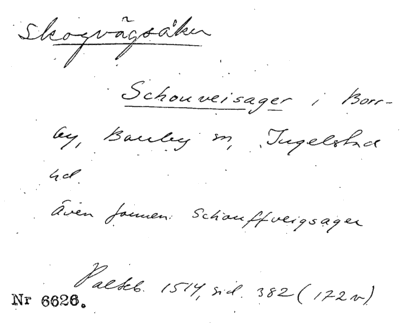 Skogvägsåker
Schouveisager i Borr-
by, Borrby sn, Ingelstad
hd.
även formen Schouffveigsager
Palteb. 1514, sid. 382 (172 v).
Nr 6626.